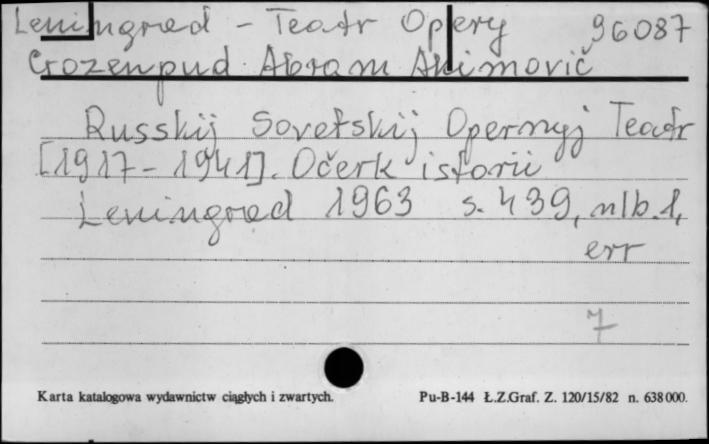 Leningrad - Teatr Opery 96087
Gozenpud Abram Akimovič
Russkij Sovetskij Opernyj Teatr
[1917-1941]. Očerk istorii
Leningrad 1963 s. 439, nlb. 1,
err
7
Karta katalogowa wydawnictw ciągłych i zwartych. Pu-B-144 Ł.Z.Graf. Z. 120/15/82 n. 638000.